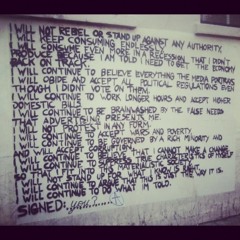 I WILL NOT REBEL OR STAND UP AGAINST ANY AUTHORITY.
I WILL KEEP CONSUMING ENDLESSLY.
I WILL CONSUME EVEN MORE IN A RECESSION, THAT I DIDN'T
PRODUCE BECAUSE I AM TOLD I NEED TO GET THE ECONOMY
BACK ON TRACK.
I WILL CONTINUE TO BELIEVE EVERYTHING THE MEDIA PORTRAYS
I WILL OBIDE AND ACCEPT ALL POLITICAL REGULATIONS EVEN
THOUGH I DIDN'T VOTE ON THEM.
I WILL CONTINUE TO WORK LONGER HOURS AND ACCEPT HIGHER
DOMESTIC BILLS
I WILL CONTINUE TO BE BRAINWASHED BY THE FALSE NEEDS
ADVERTISING PRESENTS ME.
I WILL NOT PROTEST IN ANY FORM.
I WILL ALWAYS ACCEPT WARS AND POVERTY.
I WILL CONTINUE TO BE GOVERNED BY A RICH MINORITY AND
AND WILL ACCEPT THAT I CANNOT MAKE A CHANGE
I WILL CONTINUE TO SUPPRESS TRUE CHARACTERISTICS OF MYSELF
I WILL NOT STAND UP FOR WHAT I KNOW IS
I WILL CONTINUE TO BELIEVE THAT THIS IS JUST THE WAY IT IS.
I WILL CONTINUE TO DO WHAT I'M TOLD.
SIGNED: